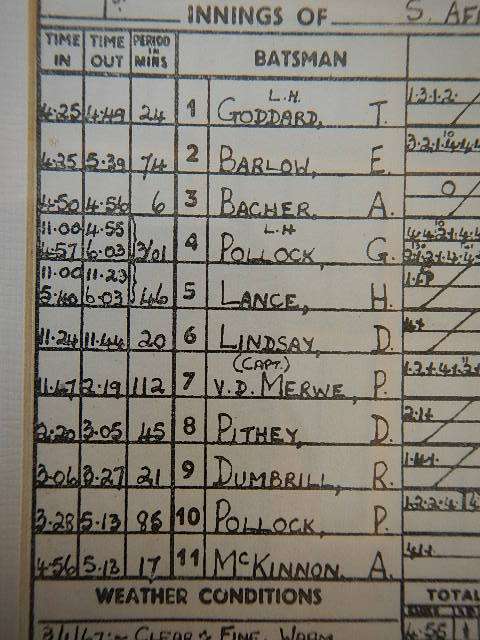 INNINGS OF S. AF
TIME IN TIME OUT PERIOD IN MINS BATSMAN
4.25 4.49 24 1 GODDARD, L.H. T. 1.3.1.2.
4.25 5.39 74 2 BARLOW, E.
4.50 4.56 6 3 BACHER. A. 0
11.00 4.55
4.57 6.03 3/01 4 POLLOCK, L.H. G.
11.00 11.23
5.40 6.03 46 5 LANCE, H.
11.24 11.44 20 6 LINDSAY, D.
11.47 2.19 112 7 (CAPT.) V.D. MERWE, P.
2.20 3.05 45 8 PITHEY, D.
3.06 3.27 21 9 DUMBRILL, R.
3.28 5.13 10 POLLOCK, P.
4.56 5.13 17 11 McKINNON. A.
WEATHER CONDITIONS TOTAL
CLEAR & FINE, WARM 4.55